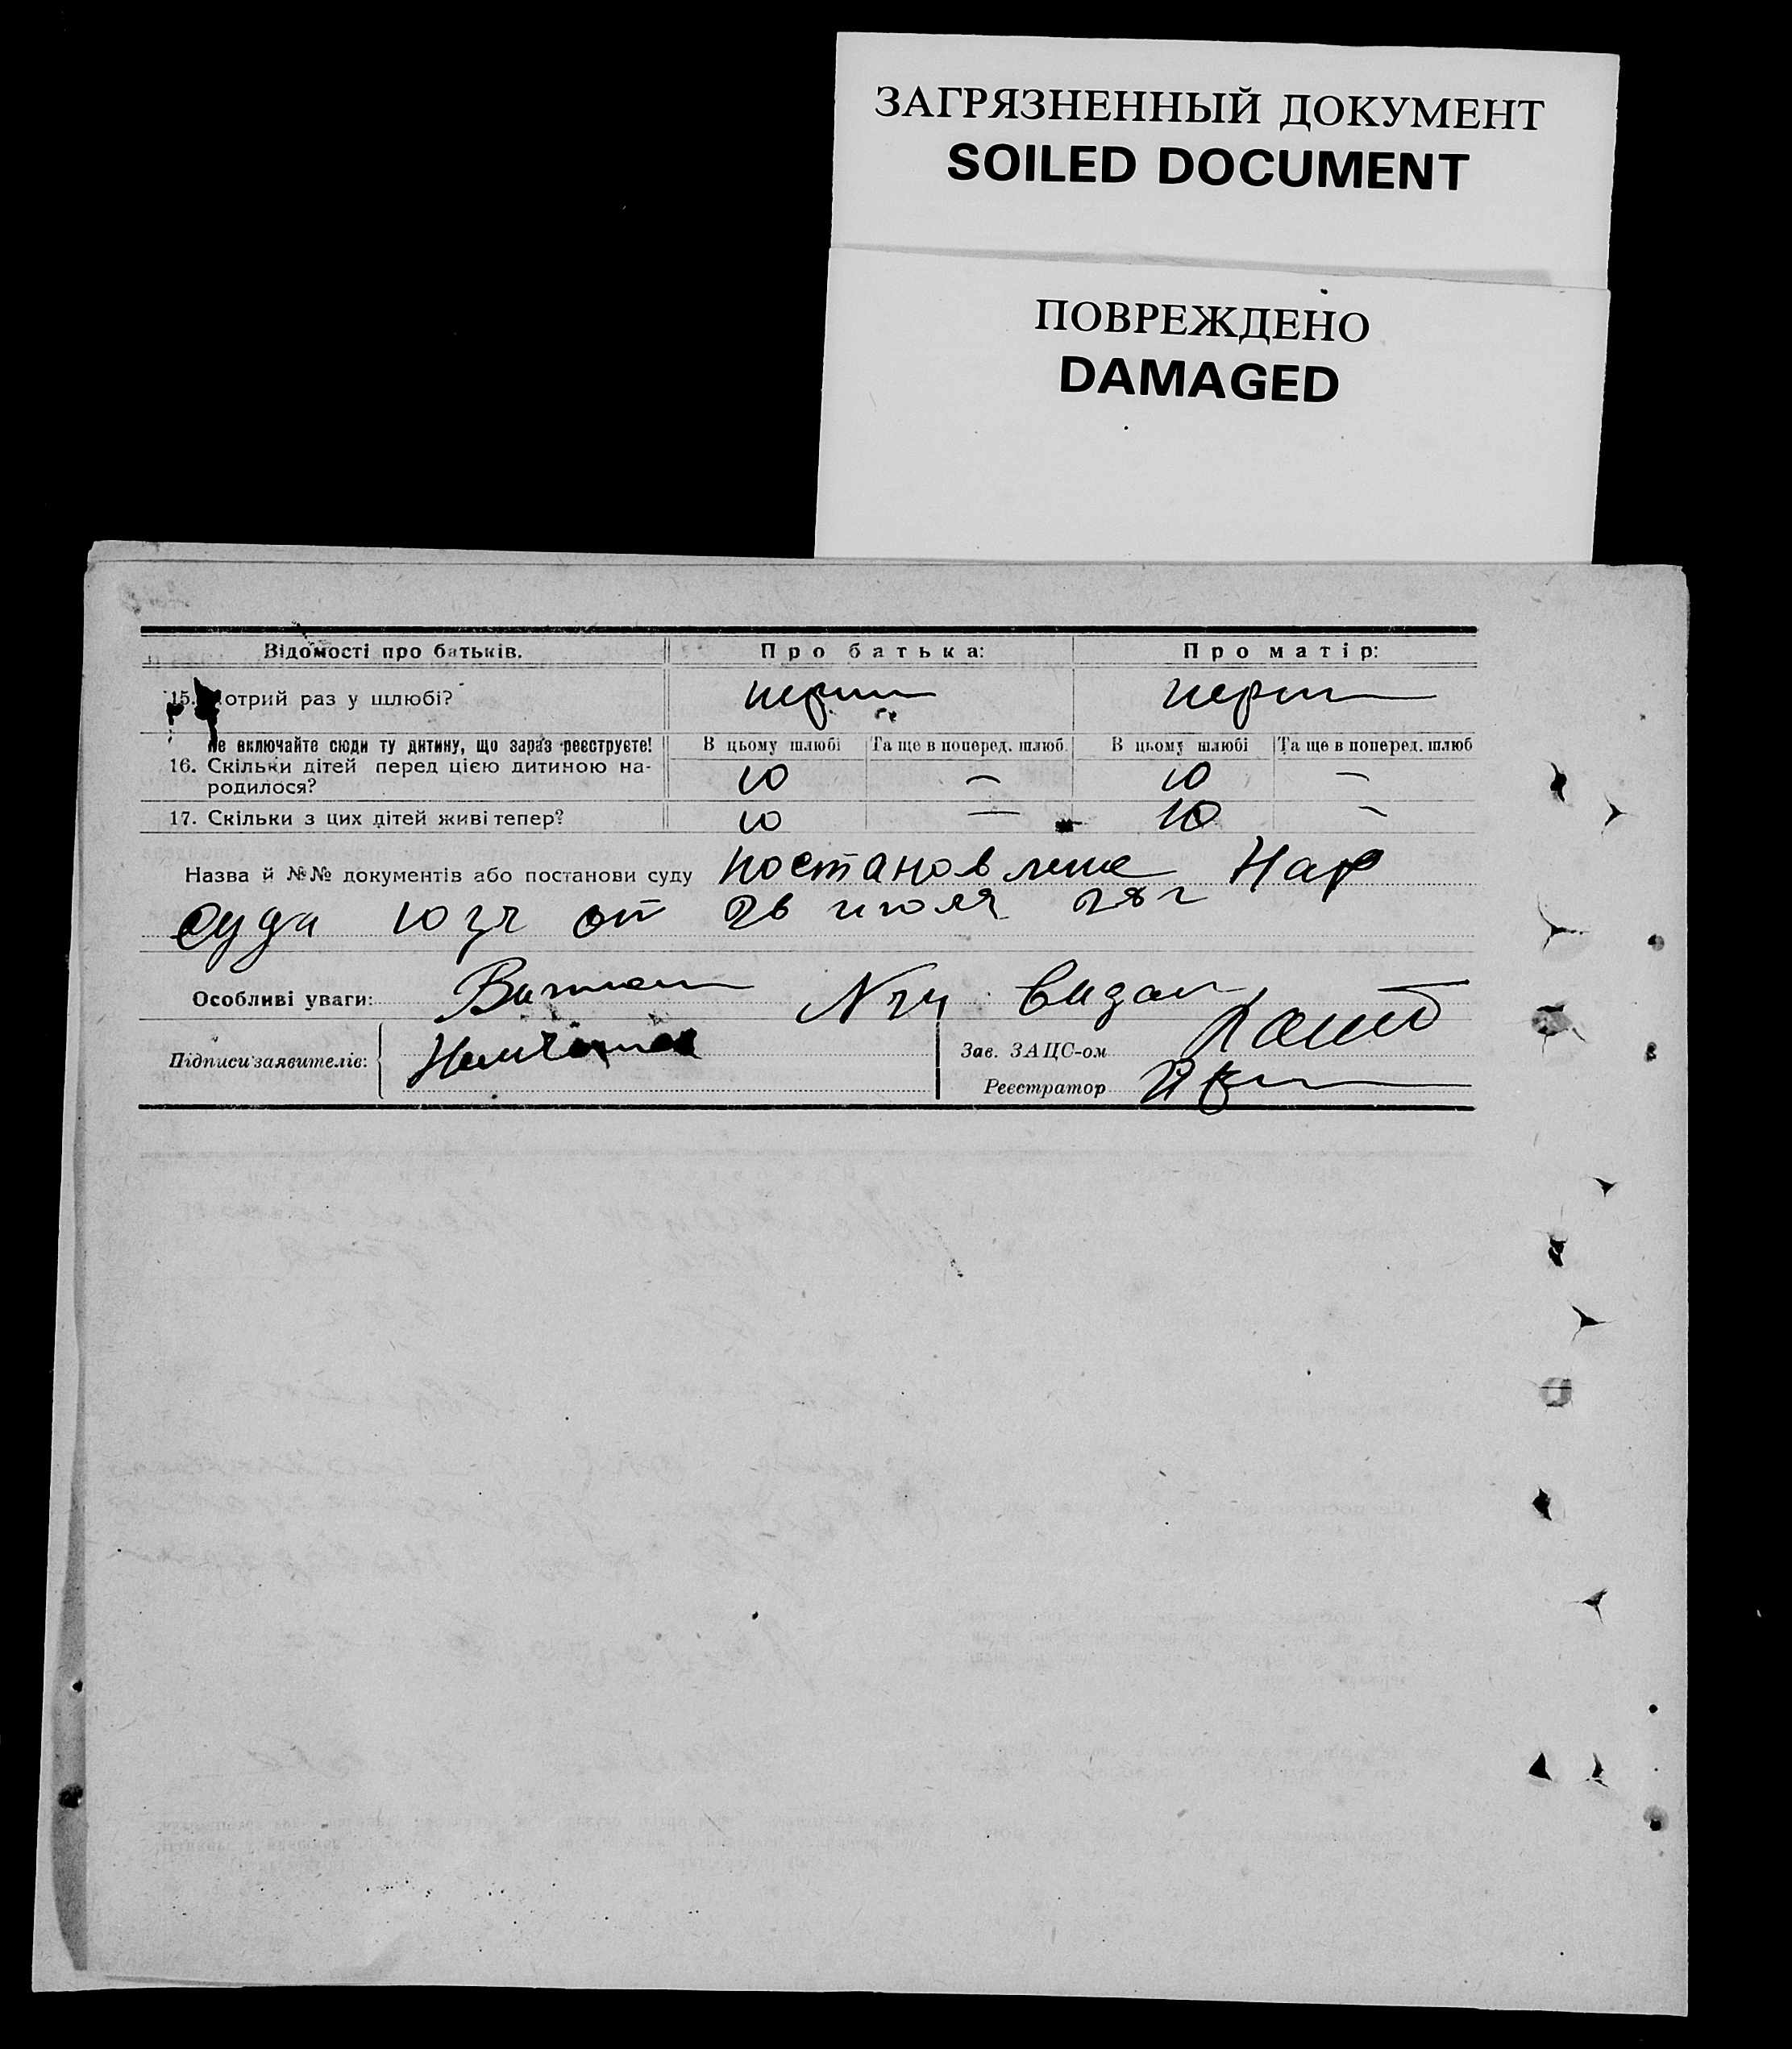 ЗАГРЯЗНЕННЫЙ ДОКУМЕНТ
SOILED DOCUMENT
ПОВРЕЖДЕНО
DAMAGED
Відомості про батьків. Про батька: Про матір:
15. отрий раз у шлюбі?
Не включайте сюди ту дитину, що зараз реєструєте! В цьому шлюбі Та ще в поперед. шлюб. В цьому шлюбі Та ще в поперед. шлюб
16. Скільки дітей перед цією дитиною на- 10 — 10 —
родилося?
17. Скільки з цих дітей живі тепер? 10 — 10 —
Назва й №№ документів або постанови суду Нар
суда от 26 июля 28 г
Особливі уваги: N видан
Підписи заявителів: Зав. ЗАЦС-ом
Реєстратор